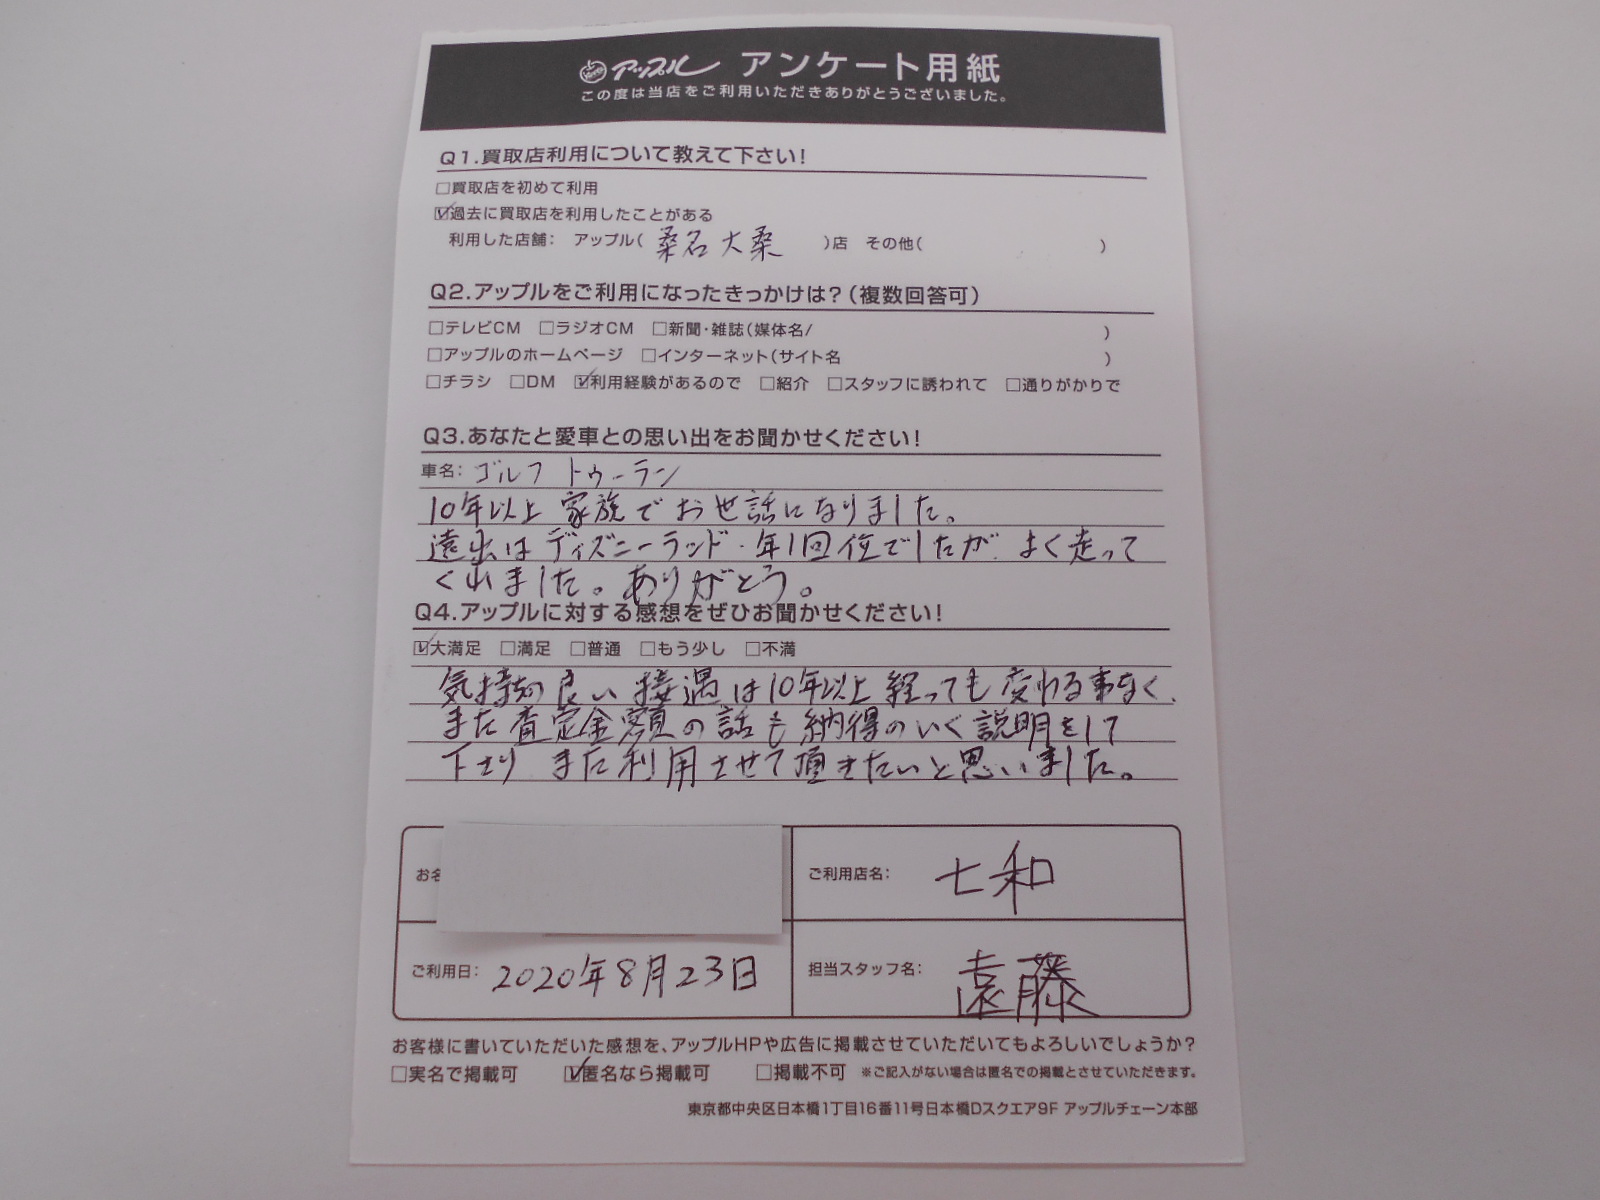 アップル アンケート用紙
この度は当店をご利用いただきありがとうございました。
Q1.買取店利用について教えて下さい!
□買取店を初めて利用
☑過去に買取店を利用したことがある
利用した店舗: アップル( 桑名大桑 )店 その他( )
Q2.アップルをご利用になったきっかけは?(複数回答可)
□テレビCM □ラジオCM □新聞・雑誌(媒体名/ )
□アップルのホームページ □インターネット(サイト名 )
□チラシ □DM ☑利用経験があるので □紹介 □スタッフに誘われて □通りがかりで
Q3.あなたと愛車との思い出をお聞かせください!
車名: ゴルフ トゥーラン
10年以上 家族でお世話になりました。
遠出はディズニーランド・年1回位でしたが よく走って
くれました。ありがとう。
Q4.アップルに対する感想をぜひお聞かせください!
☑大満足 □満足 □普通 □もう少し □不満
気持ちの良い接遇は10年以上経っても変わる事なく、
また査定金額の話も納得のいく説明をして
下さり また利用させて頂きたいと思いました。
お名
ご利用店名: 七和
ご利用日: 2020年8月23日
担当スタッフ名: 遠藤
お客様に書いていただいた感想を、アップルHPや広告に掲載させていただいてもよろしいでしょうか?
□実名で掲載可 ☑匿名なら掲載可 □掲載不可 ※ご記入がない場合は匿名での掲載とさせていただきます。
東京都中央区日本橋1丁目16番11号日本橋Dスクエア9F アップルチェーン本部